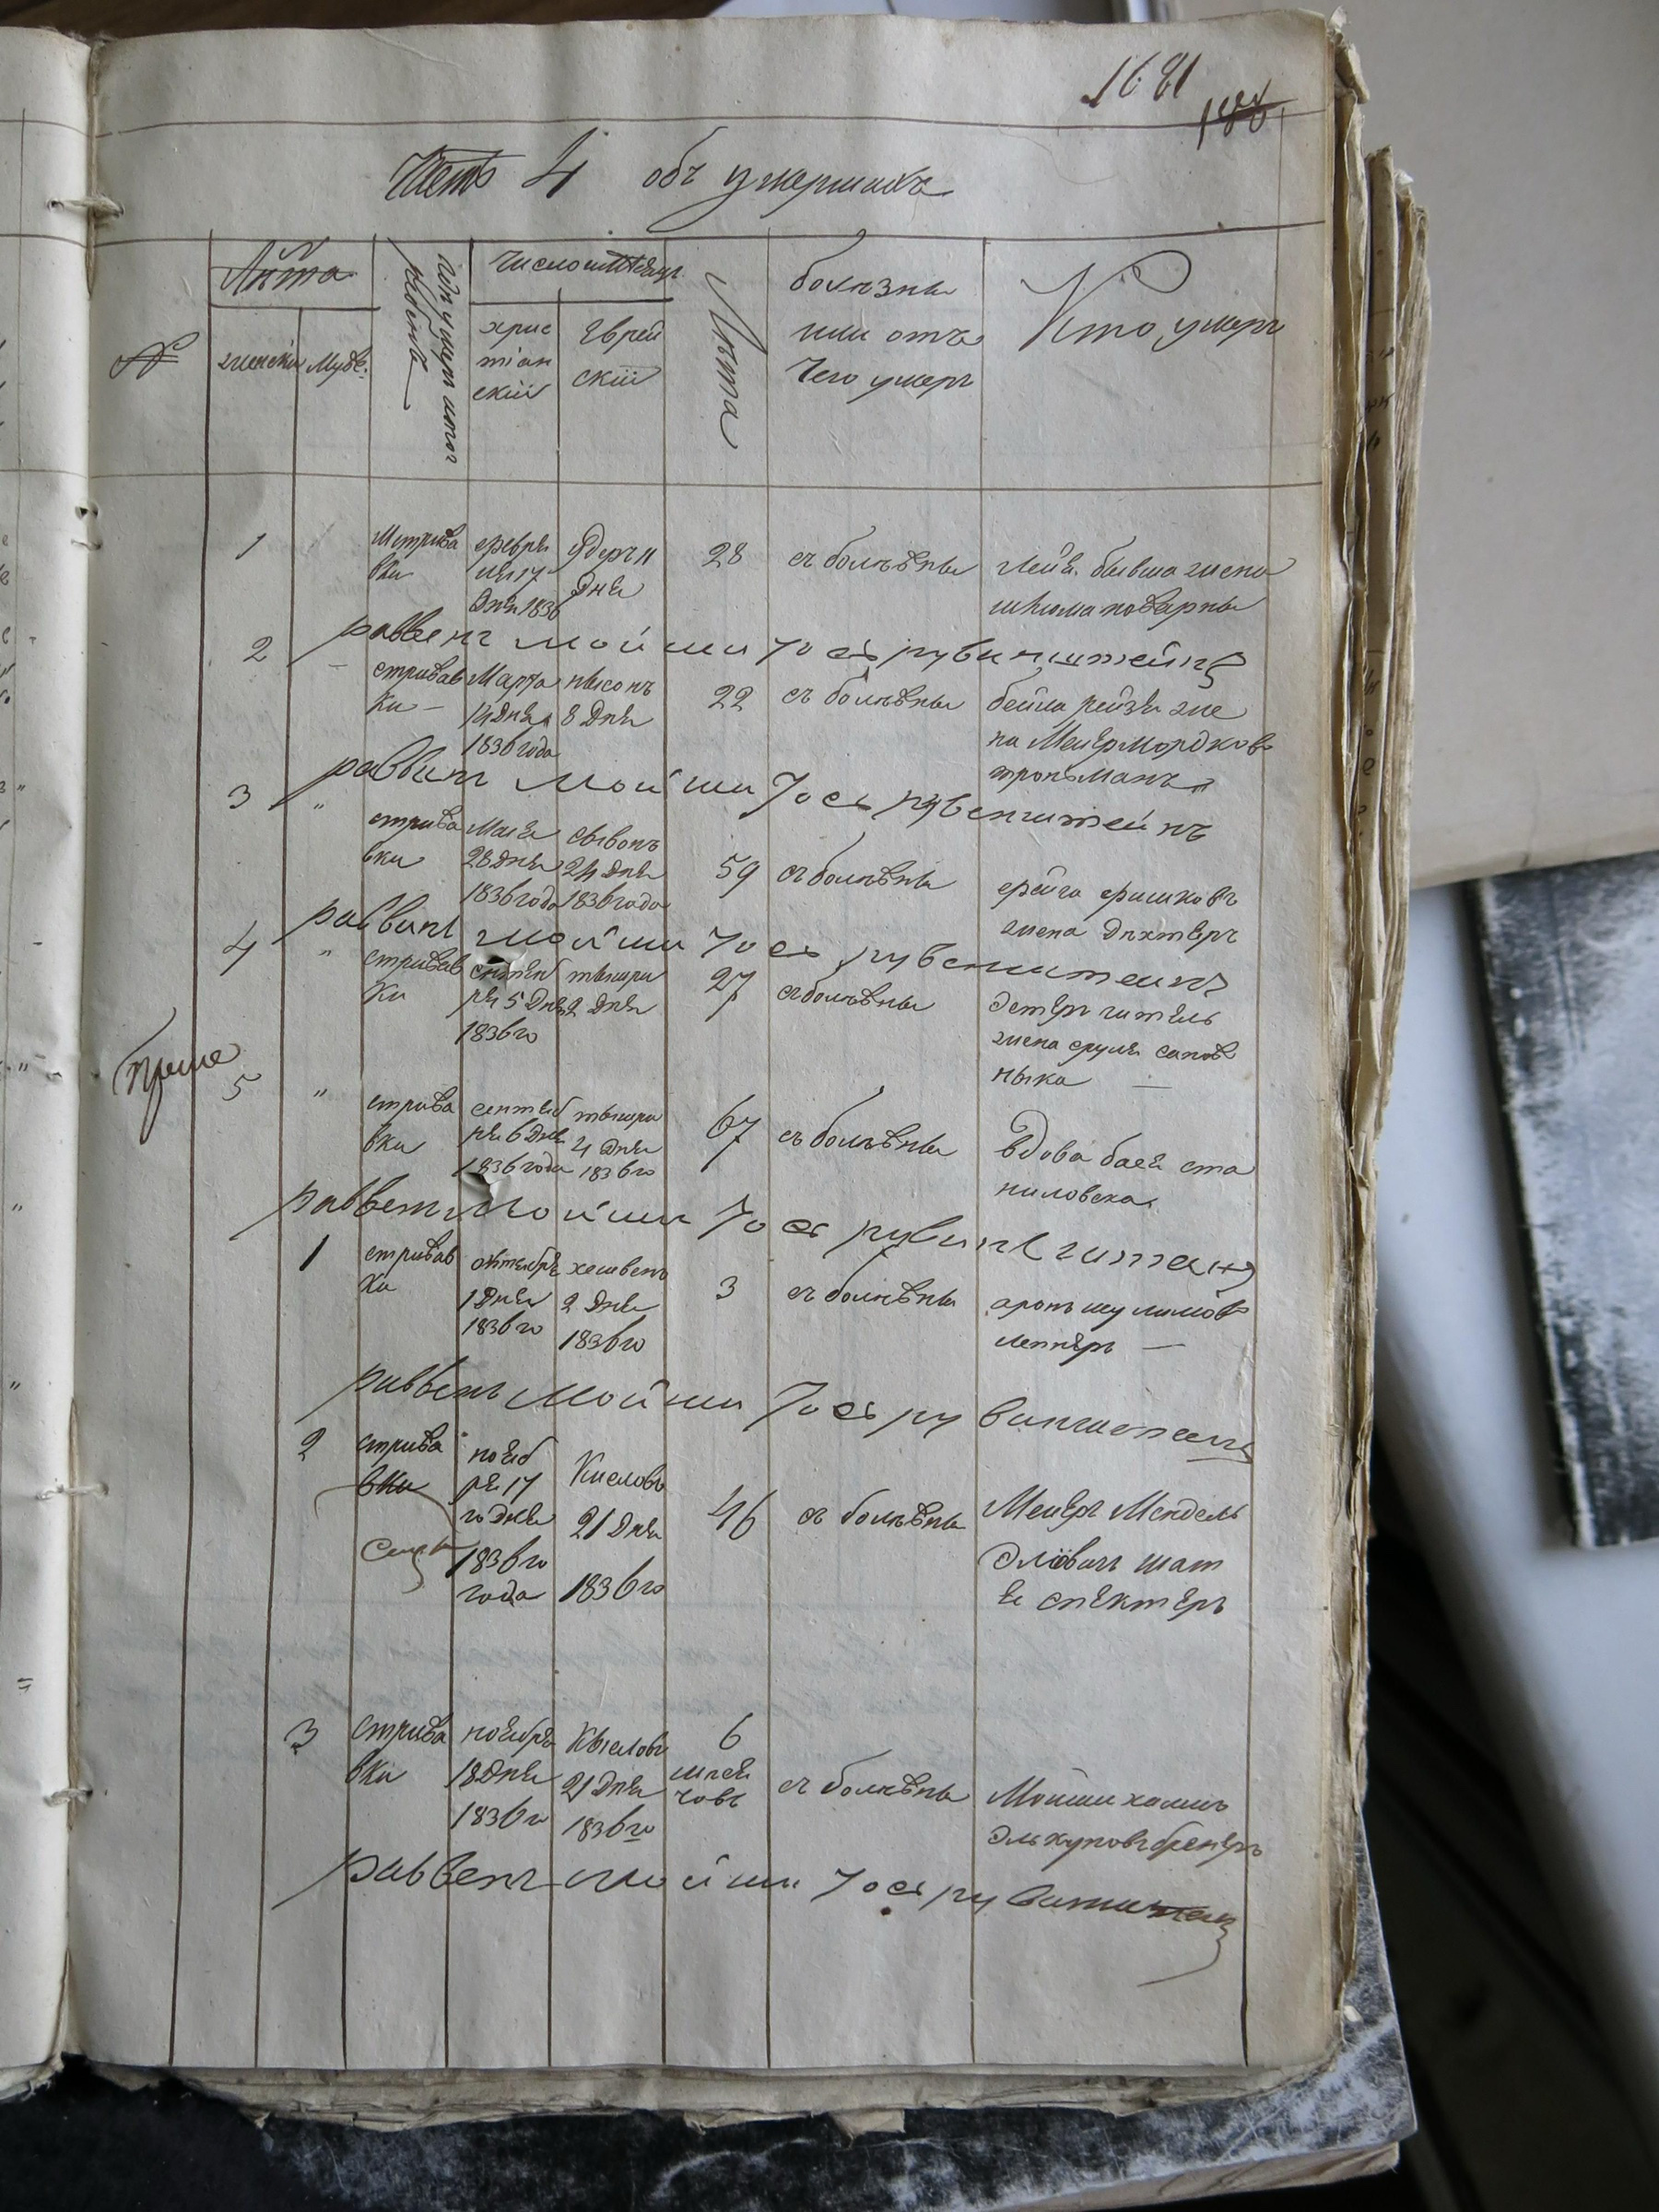 1681
188
Часть 4 объ умершихъ
№
Лѣта
женски
Мужс.
где умеръ и пог
ребенъ
число и месяцъ
хрис
тіан
скій
Еврей
скій
Лѣта
болѣзнь
или отъ
чего умеръ
Кто умеръ
1
стрива
вки
февра
ля 17
дня 1836
адеръ 11
дня
28
съ болѣзны
лея бывша жена
шлиома поварны
раввенъ мойши Іось рувинштейнъ
2
стривав
ки
Марта
14 дня
1836 года
нысонъ
8 дня
22
съ болѣзны
бейла рейзя же
на Меиер мордков
тропъманъ
раввинъ мойши Іось рувенштейнъ
3
"
стрива
вки
Мая
28 дня
1836 года
сывонъ
24 дня
1836 года
59
съ болѣзны
фейга фишковъ
жена дихтяръ
раввинъ мойши Іось рувенштейнъ
4
"
стривав
ки
сентяб
ря 5 дня
1836 го
тышри
2 дня
27
съ болѣзны
эстеръ гитель
жена сруля сапож
ныка
5
"
стрива
вки
сентяб
ря 6 дня
1836 года
тышри
4 дня
1836 го
67
съ болѣзны
вдова бася ста
ниловска
раввенъ Мойши Іось рувинштейн
1
стривав
ки
октября
1 дня
1836 го
хешвенъ
2 дня
1836 го
3
съ болѣзны
аронъ шулимов
лепнеръ
раввенъ Мойши Іось рувинштейнъ
2
стрива
вки
нояб
ря 17
го дня
1836 го
года
Кисловъ
21 дня
1836 го
46
съ болѣзны
Меиеръ Мендель
Эліовичъ шат
я спектеръ
3
стрива
вки
ноября
18 дня
1836 го
Кысловъ
21 дня
1836 го
6
мася
човъ
съ болѣзны
Мойши хаимъ
Элькуновъ бренеръ
раввенъ мойши Іось рувинштейн